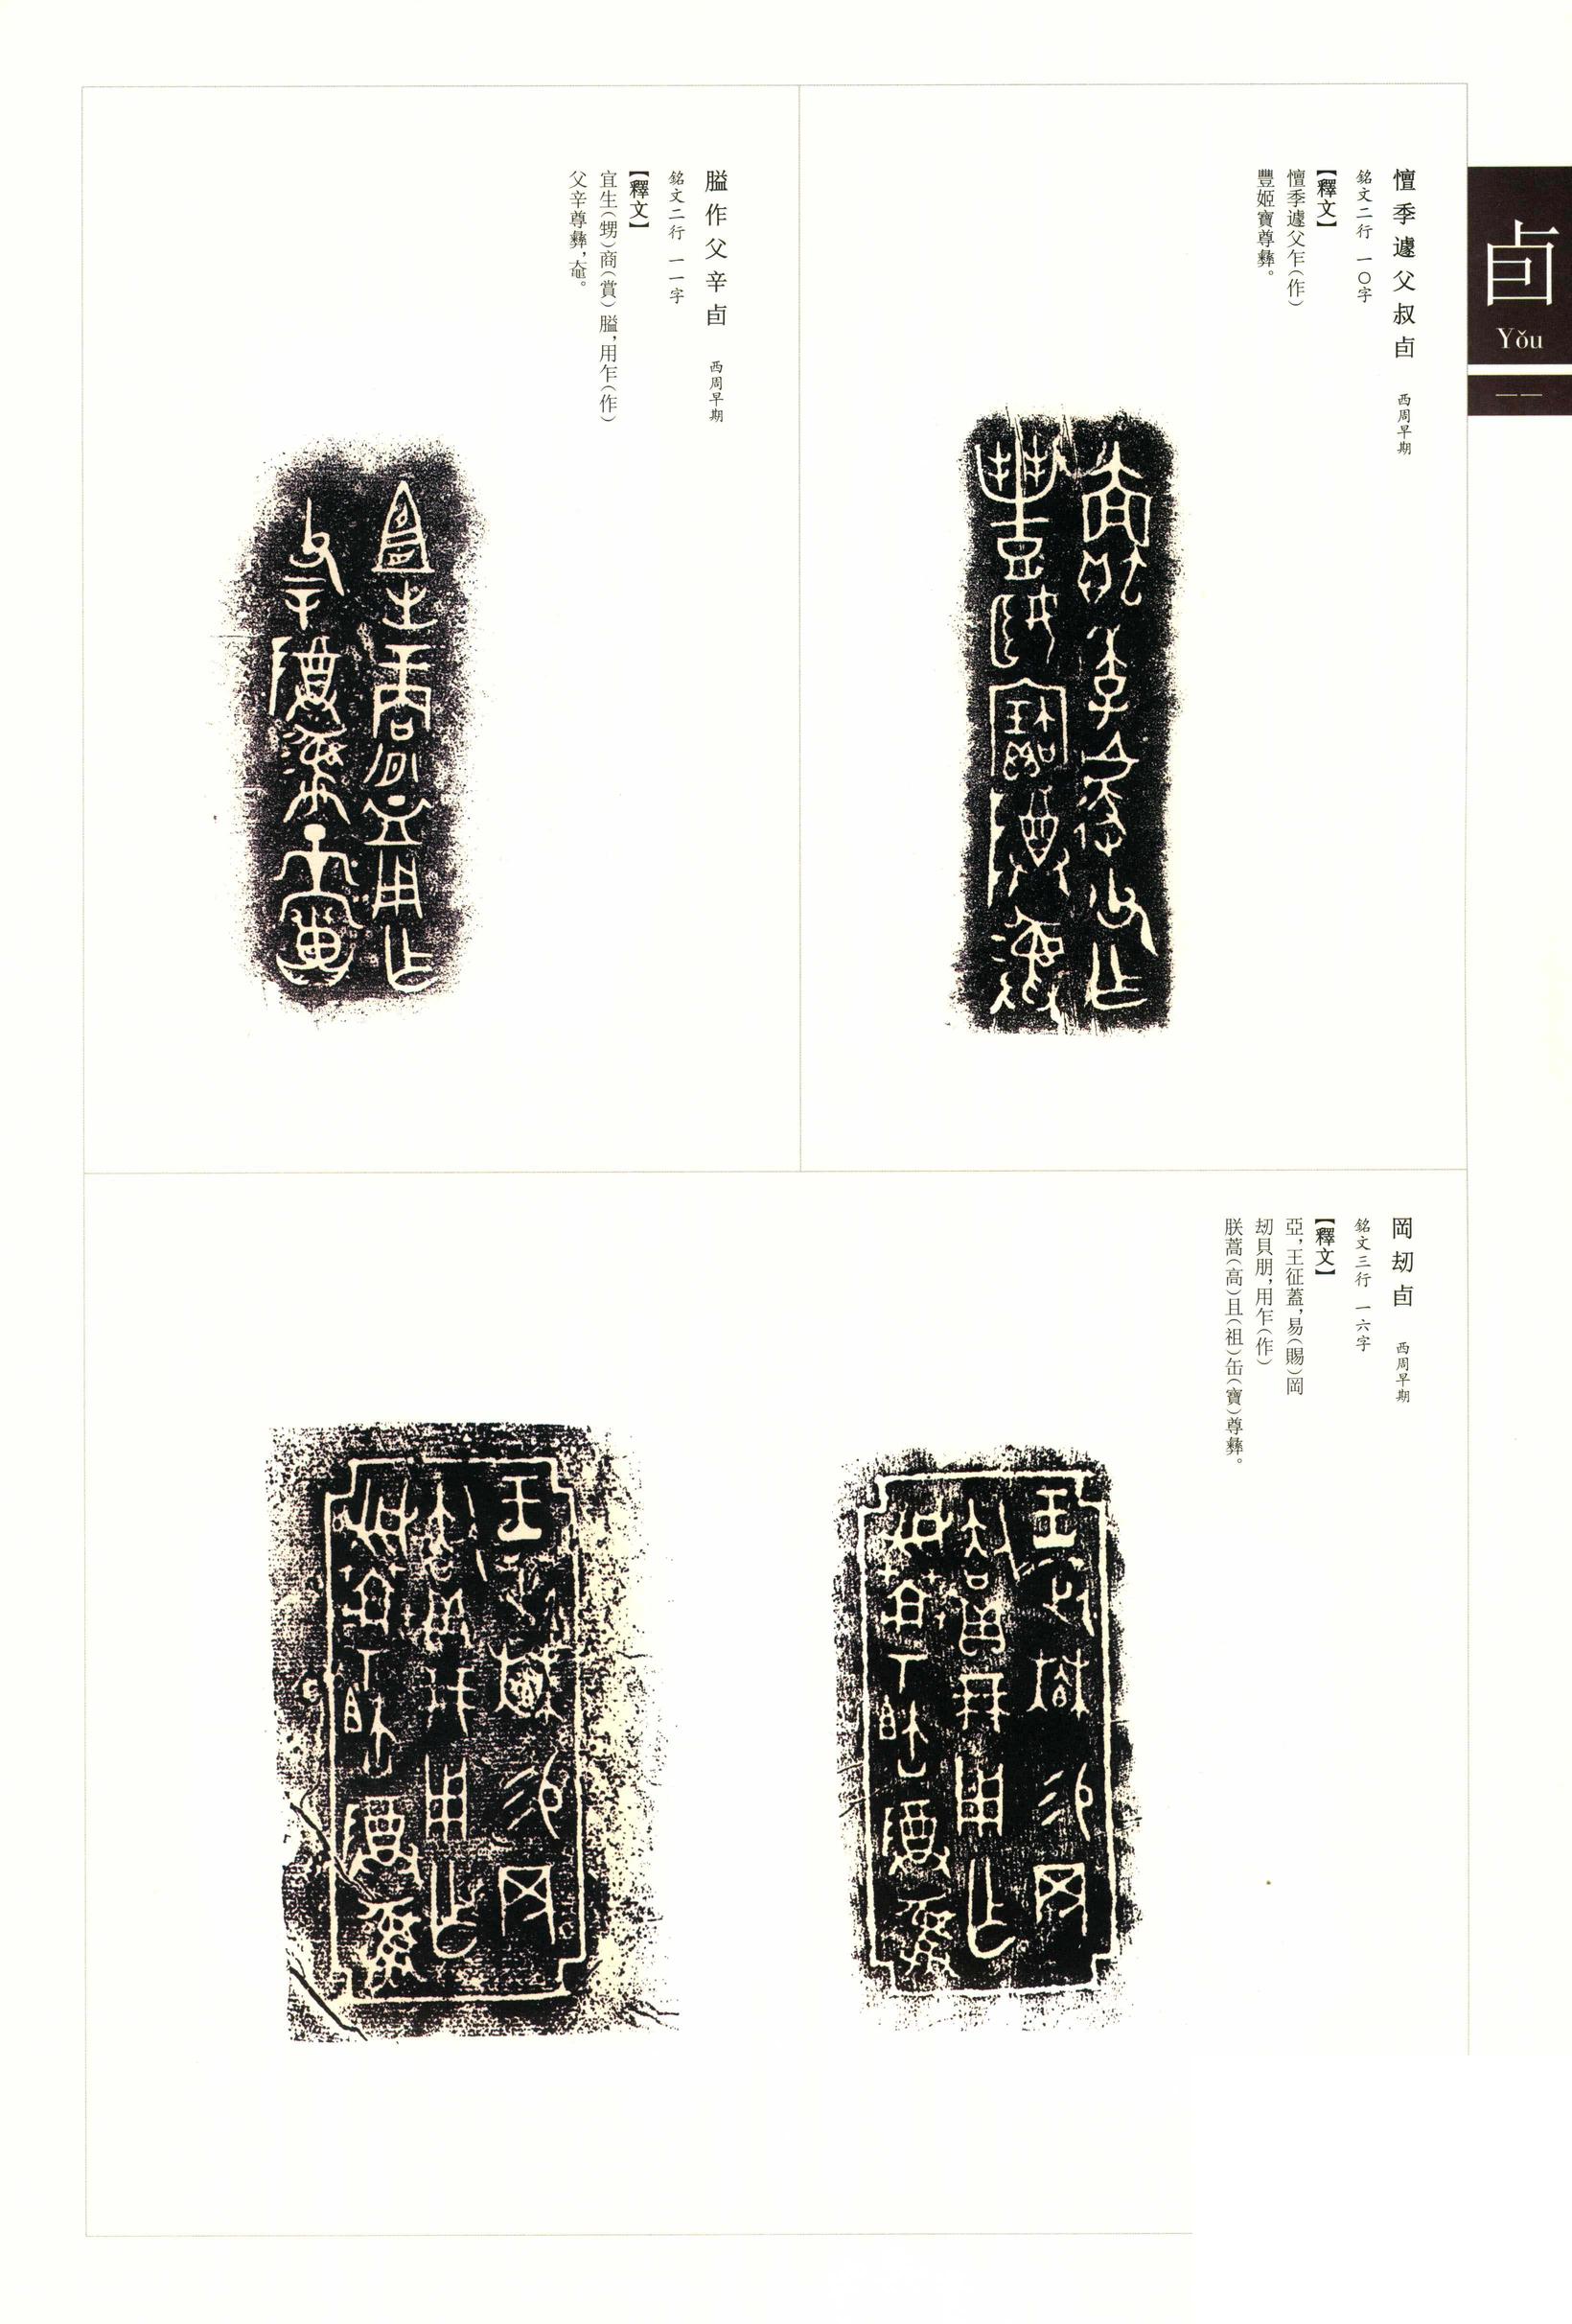 卣
Yǒu
一一
憻季遽父叔卣 西周早期
銘文二行 一〇字
【釋文】
憻季遽父乍(作)
豐姬寶尊彝。
膉作父辛卣 西周早期
銘文二行 一一字
【釋文】
宜生(甥)商(賞)膉,用乍(作)
父辛尊彝,。
岡刧卣 西周早期
銘文三行 一六字
【釋文】
亞,王征蓋,易(賜)岡
刧貝朋,用乍(作)
朕蒿(高)且(祖)缶(寶)尊彝。